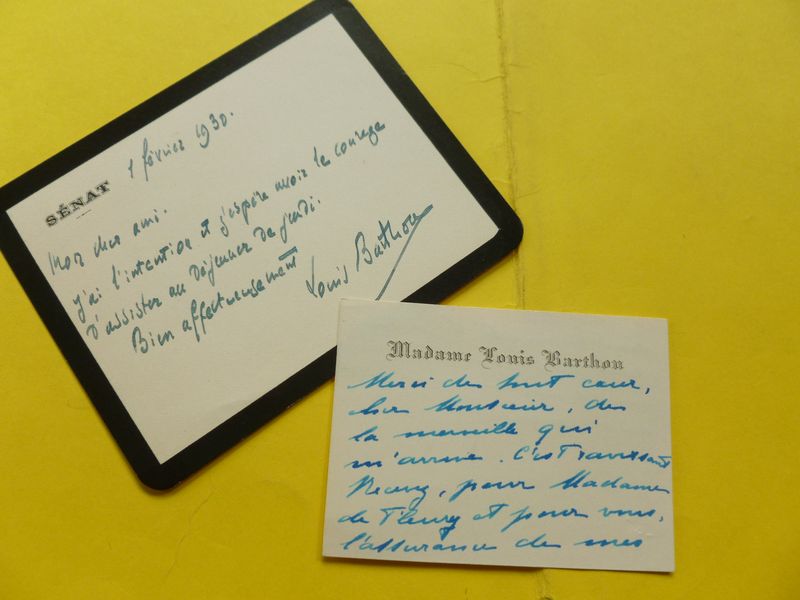 SÉNAT
1 février 1930.
Mon cher ami.
j'ai l'intention et j'espère avoir le courage
d'assister au déjeuner de jeudi.
Bien affectueusement
Louis Barthou
Madame Louis Barthou
Merci de tout cœur,
cher Monsieur, de
la merveille qui
m'arrive. C'est
Recevez, pour Madame
de Fleury et pour vous,
l'assurance de mes